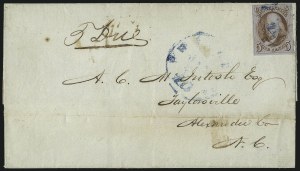 5 Due
A. C. McIntosh Esq
Taylorsville
Alexander Co
N. C.